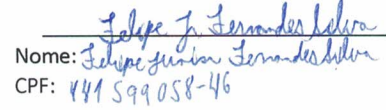 Felipe J. Fernandes Silva
Nome: Felipe Junior Fernandes Silva
CPF: 441 599 058-46